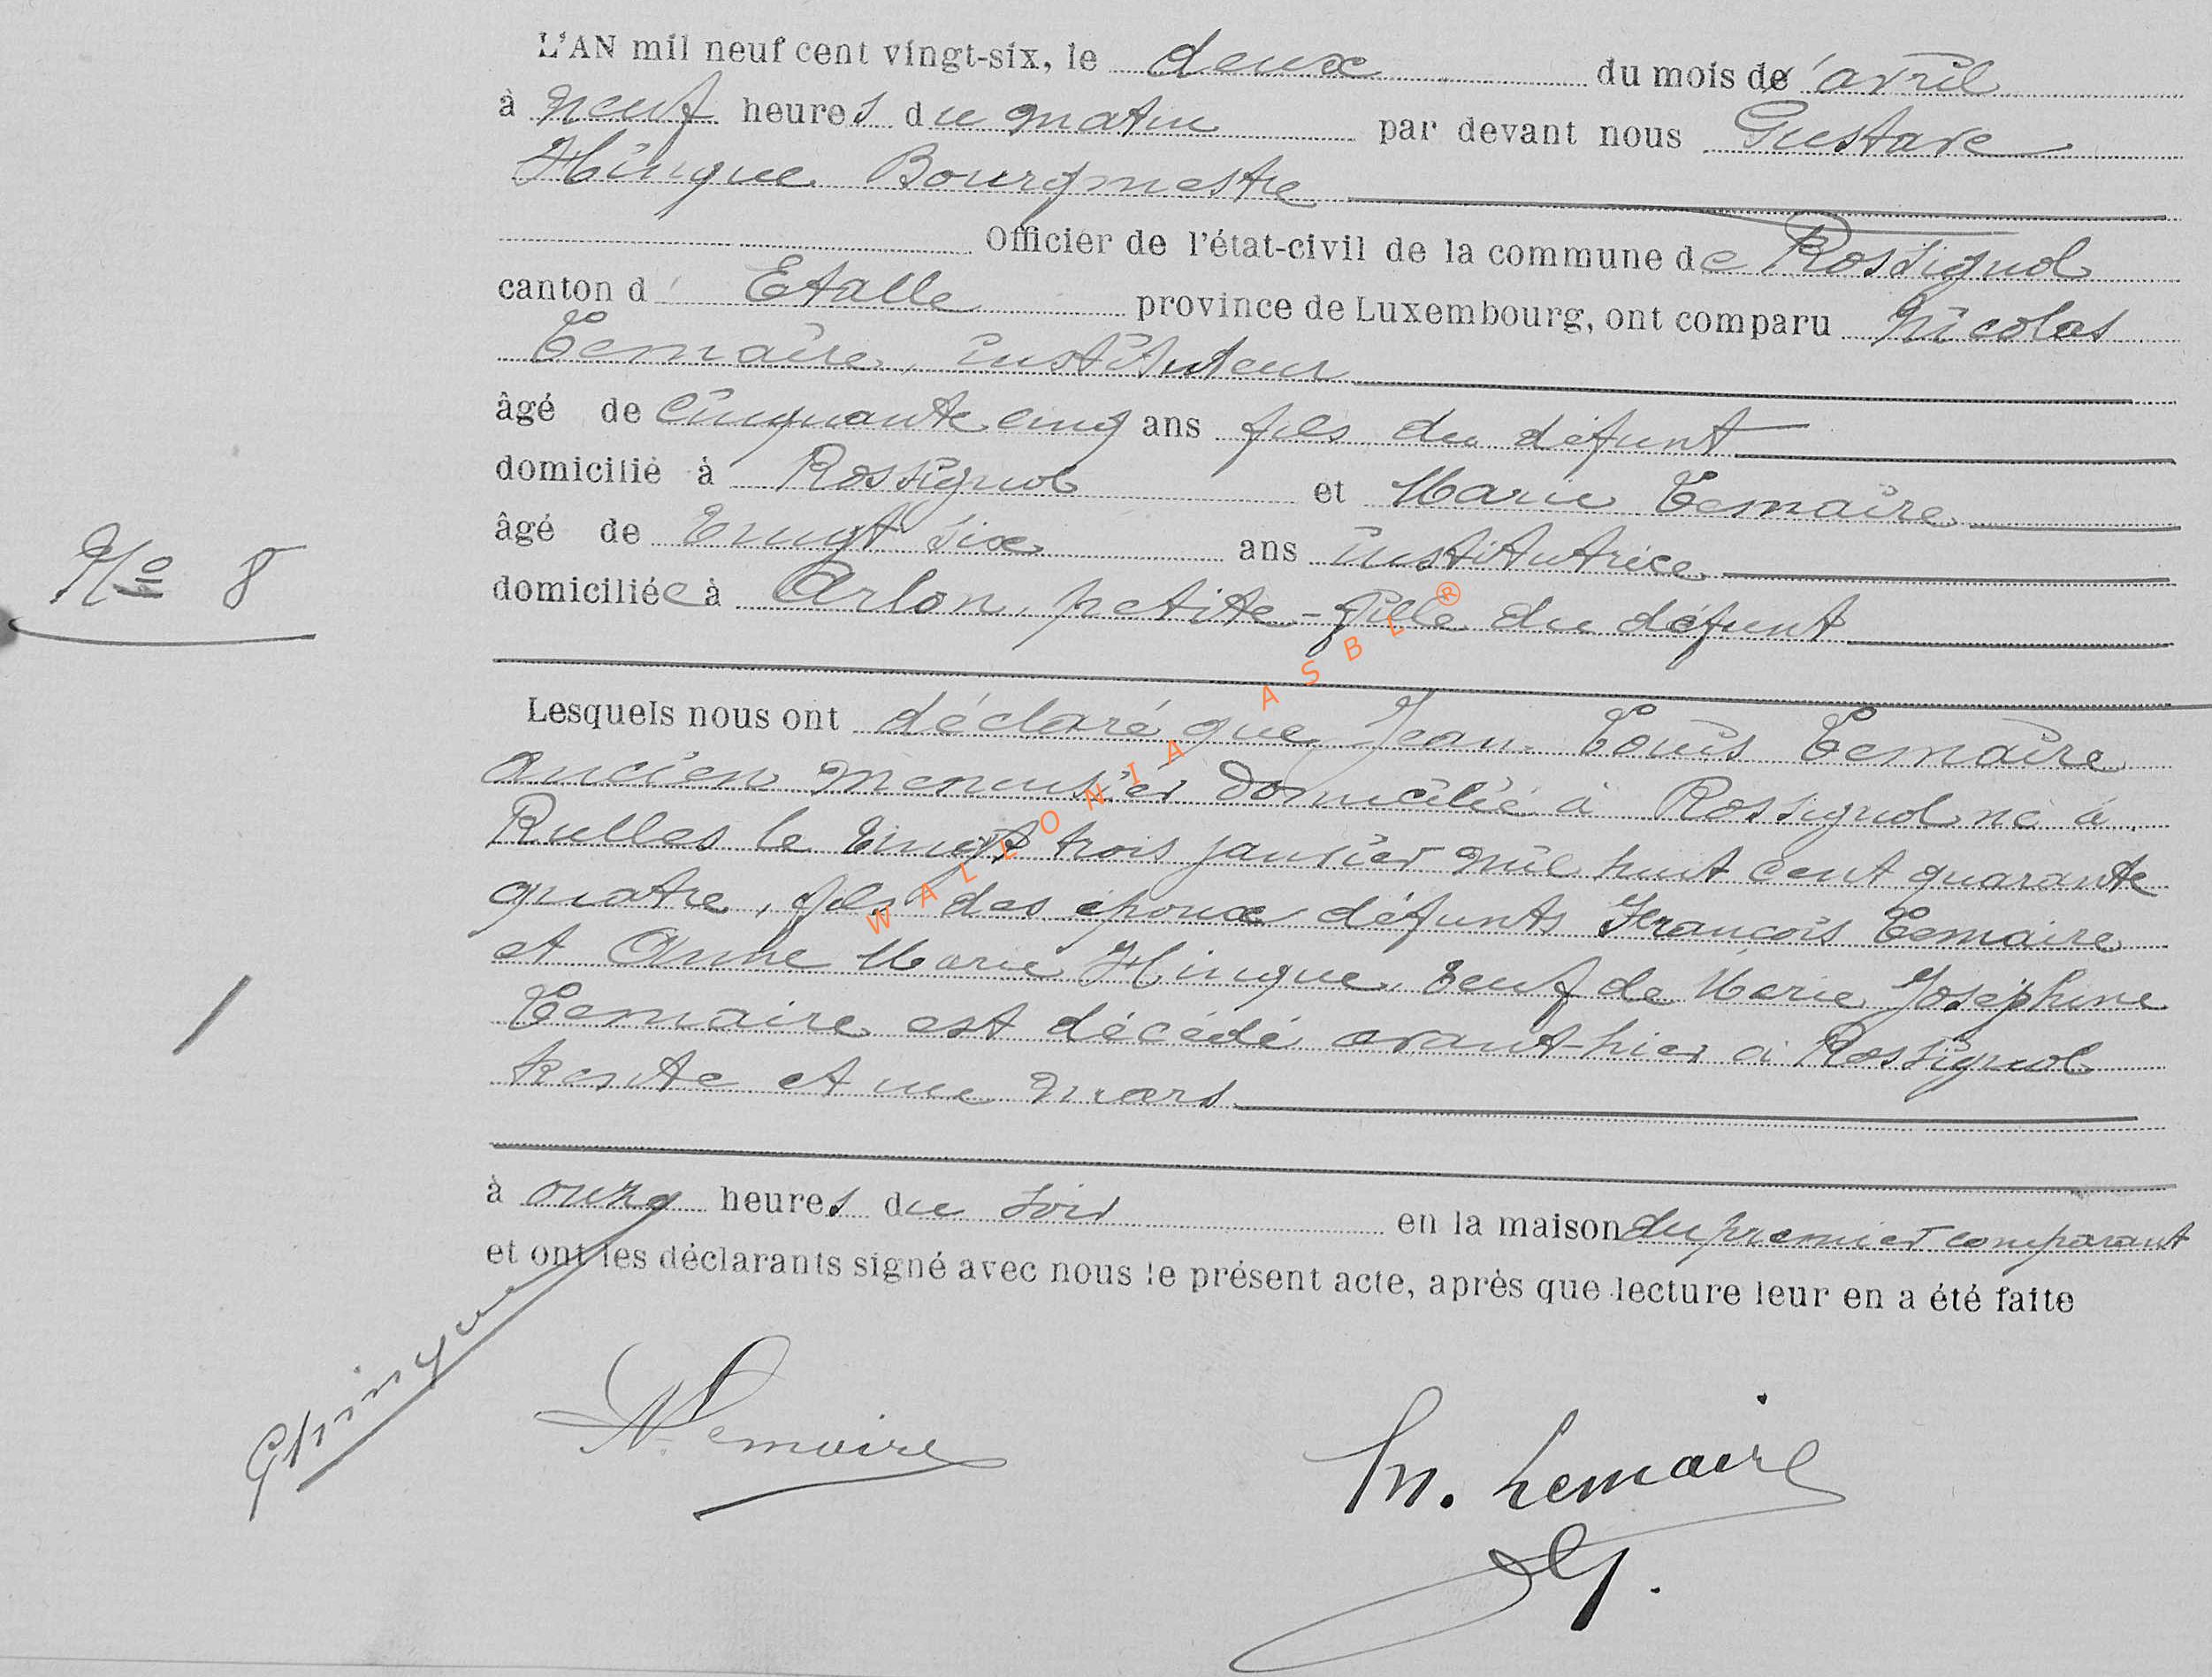 L'AN mil neuf cent vingt-six, le deux du mois de avril
à neuf heures du matin par devant nous Gustave
Hinque Bourgmestre
Officier de l'état-civil de la commune de Rossignol
canton d' Etalle province de Luxembourg, ont comparu Nicolas
Lemaire, instituteur
âgé de cinquante cinq ans fils du défunt
domicilié à Rossignol et Marie Lemaire
âgé de vingt six ans institutrice
domiciliée à Arlon, petite-fille du défunt
N° 8
Lesquels nous ont déclaré que Jean Louis Lemaire
ancien menuisier domicilié à Rossignol né à
Rulles le vingt trois janvier mil huit cent quarante
quatre, fils des époux défunts François Lemaire
et Anne Marie Hinque, veuf de Marie Joséphine
Lemaire est décédé avant-hier à Rossignol
trente et un mars
à onze heures du soir en la maison du premier comparant
et ont les déclarants signé avec nous le présent acte, après que lecture leur en a été faite
GHinque
N. Lemaire
M. Lemaire
WALLONIA ASBL ®